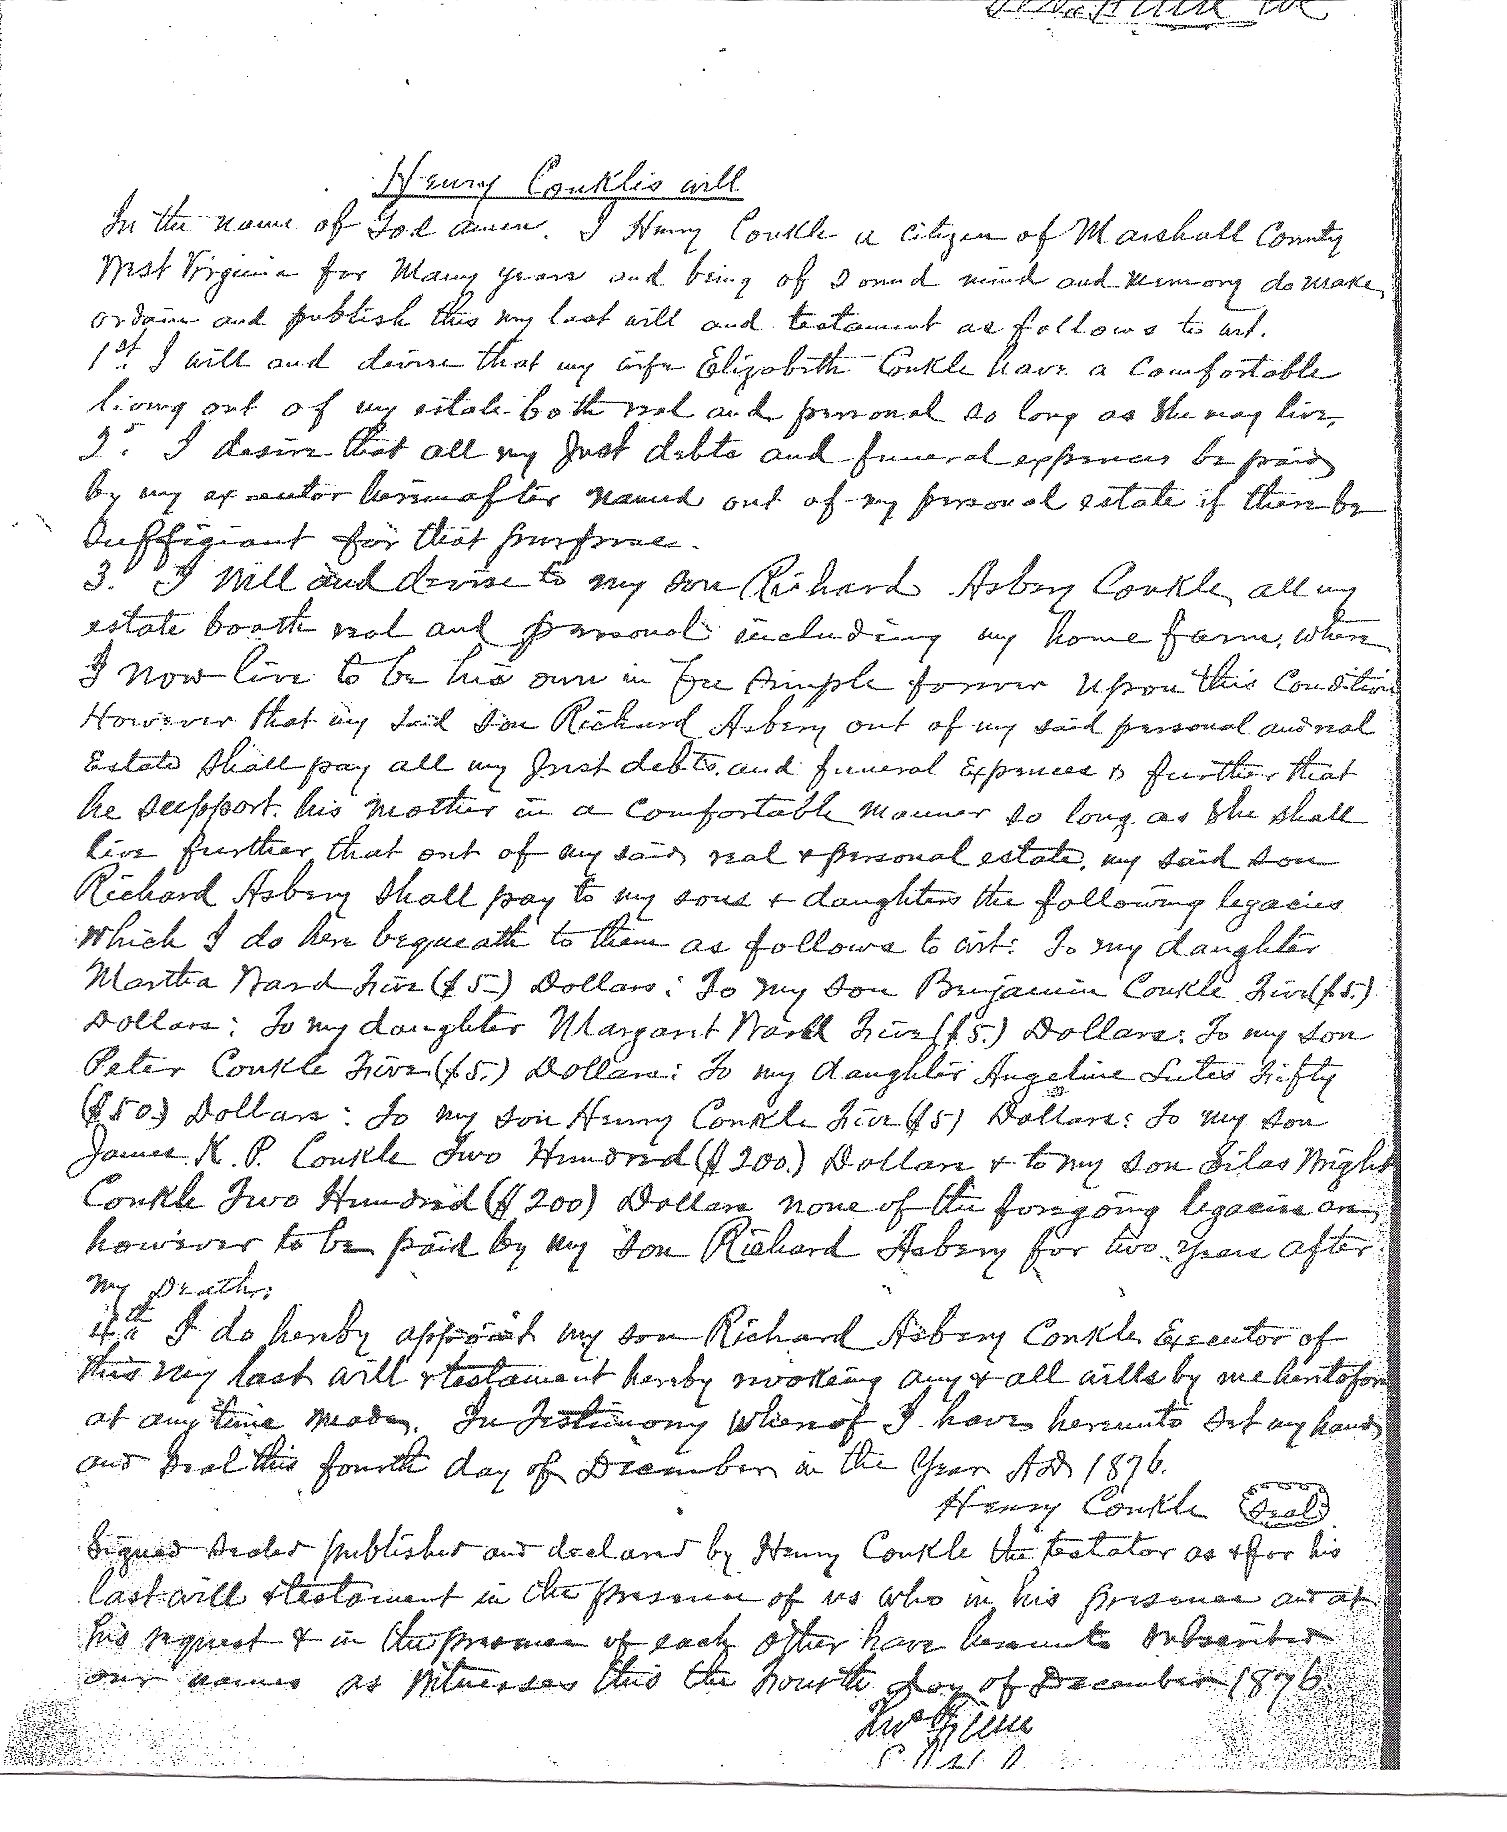 Henry Conkle's will
In the name of God amen. I Henry Conkle a citizen of Marshall County
West Virginia for Many years and being of sound mind and memory do make
ordain and publish this my last will and testament as follows to wit.
1st. I will and devise that my wife Elizabeth Conkle have a comfortable
living out of my estate both real and personal so long as she may live,
2d. I desire that all my Just debts and funeral expences be paid
by my executor hereinafter named out of my personal estate if there be
suffigiant for that purpose.
3. I Will and devise to my son Richard Asbery Conkle all my
estate booth real and personal including my home farm, where
I now live to be his own in fee simple forever upon this condition
However that my said son Richard Asbery out of my said personal and real
Estate shall pay all my Just debts and funeral Expences & further that
he support his mother in a comfortable manner so long as she shall
live further that out of my said real & personal estate, my said son
Richard Asbery shall pay to my sons & daughters the following legacies
which I do here bequeath to them as follows to wit: To my daughter
Martha Ward Five ($5-) Dollars: To my son Benjamin Conkle Five ($5.)
Dollars: To my daughter Margaret Ward Five ($5.) Dollars: To my son
Peter Conkle Five ($5.) Dollars: To my daughter Angeline Lutes Fifty
($50.) Dollars: To my son Henry Conkle Five ($5) Dollars: To my son
James K. P. Conkle Two Hundred ($200.) Dollars & to my son Silas Wright
Conkle Two Hundred ($200) Dollars none of the foregoing legacies are
however to be paid by my son Richard Asbery for two years after
my Death:
4th I do hereby appoint my son Richard Asbery Conkle Executor of
this my last will & testament hereby revoking any & all wills by me heretofore
at any time made. In Testimony Whereof I have hereunto set my hand
and seal this fourth day of December in the Year AD 1876.
Henry Conkle Seal
Signed sealed published and declared by Henry Conkle the testator as & for his
last will & testament in the presence of us who in his presence and at
his request & in the presence of each other have hereunto subscribed
our names as witnesses this the Fourth day of December 1876